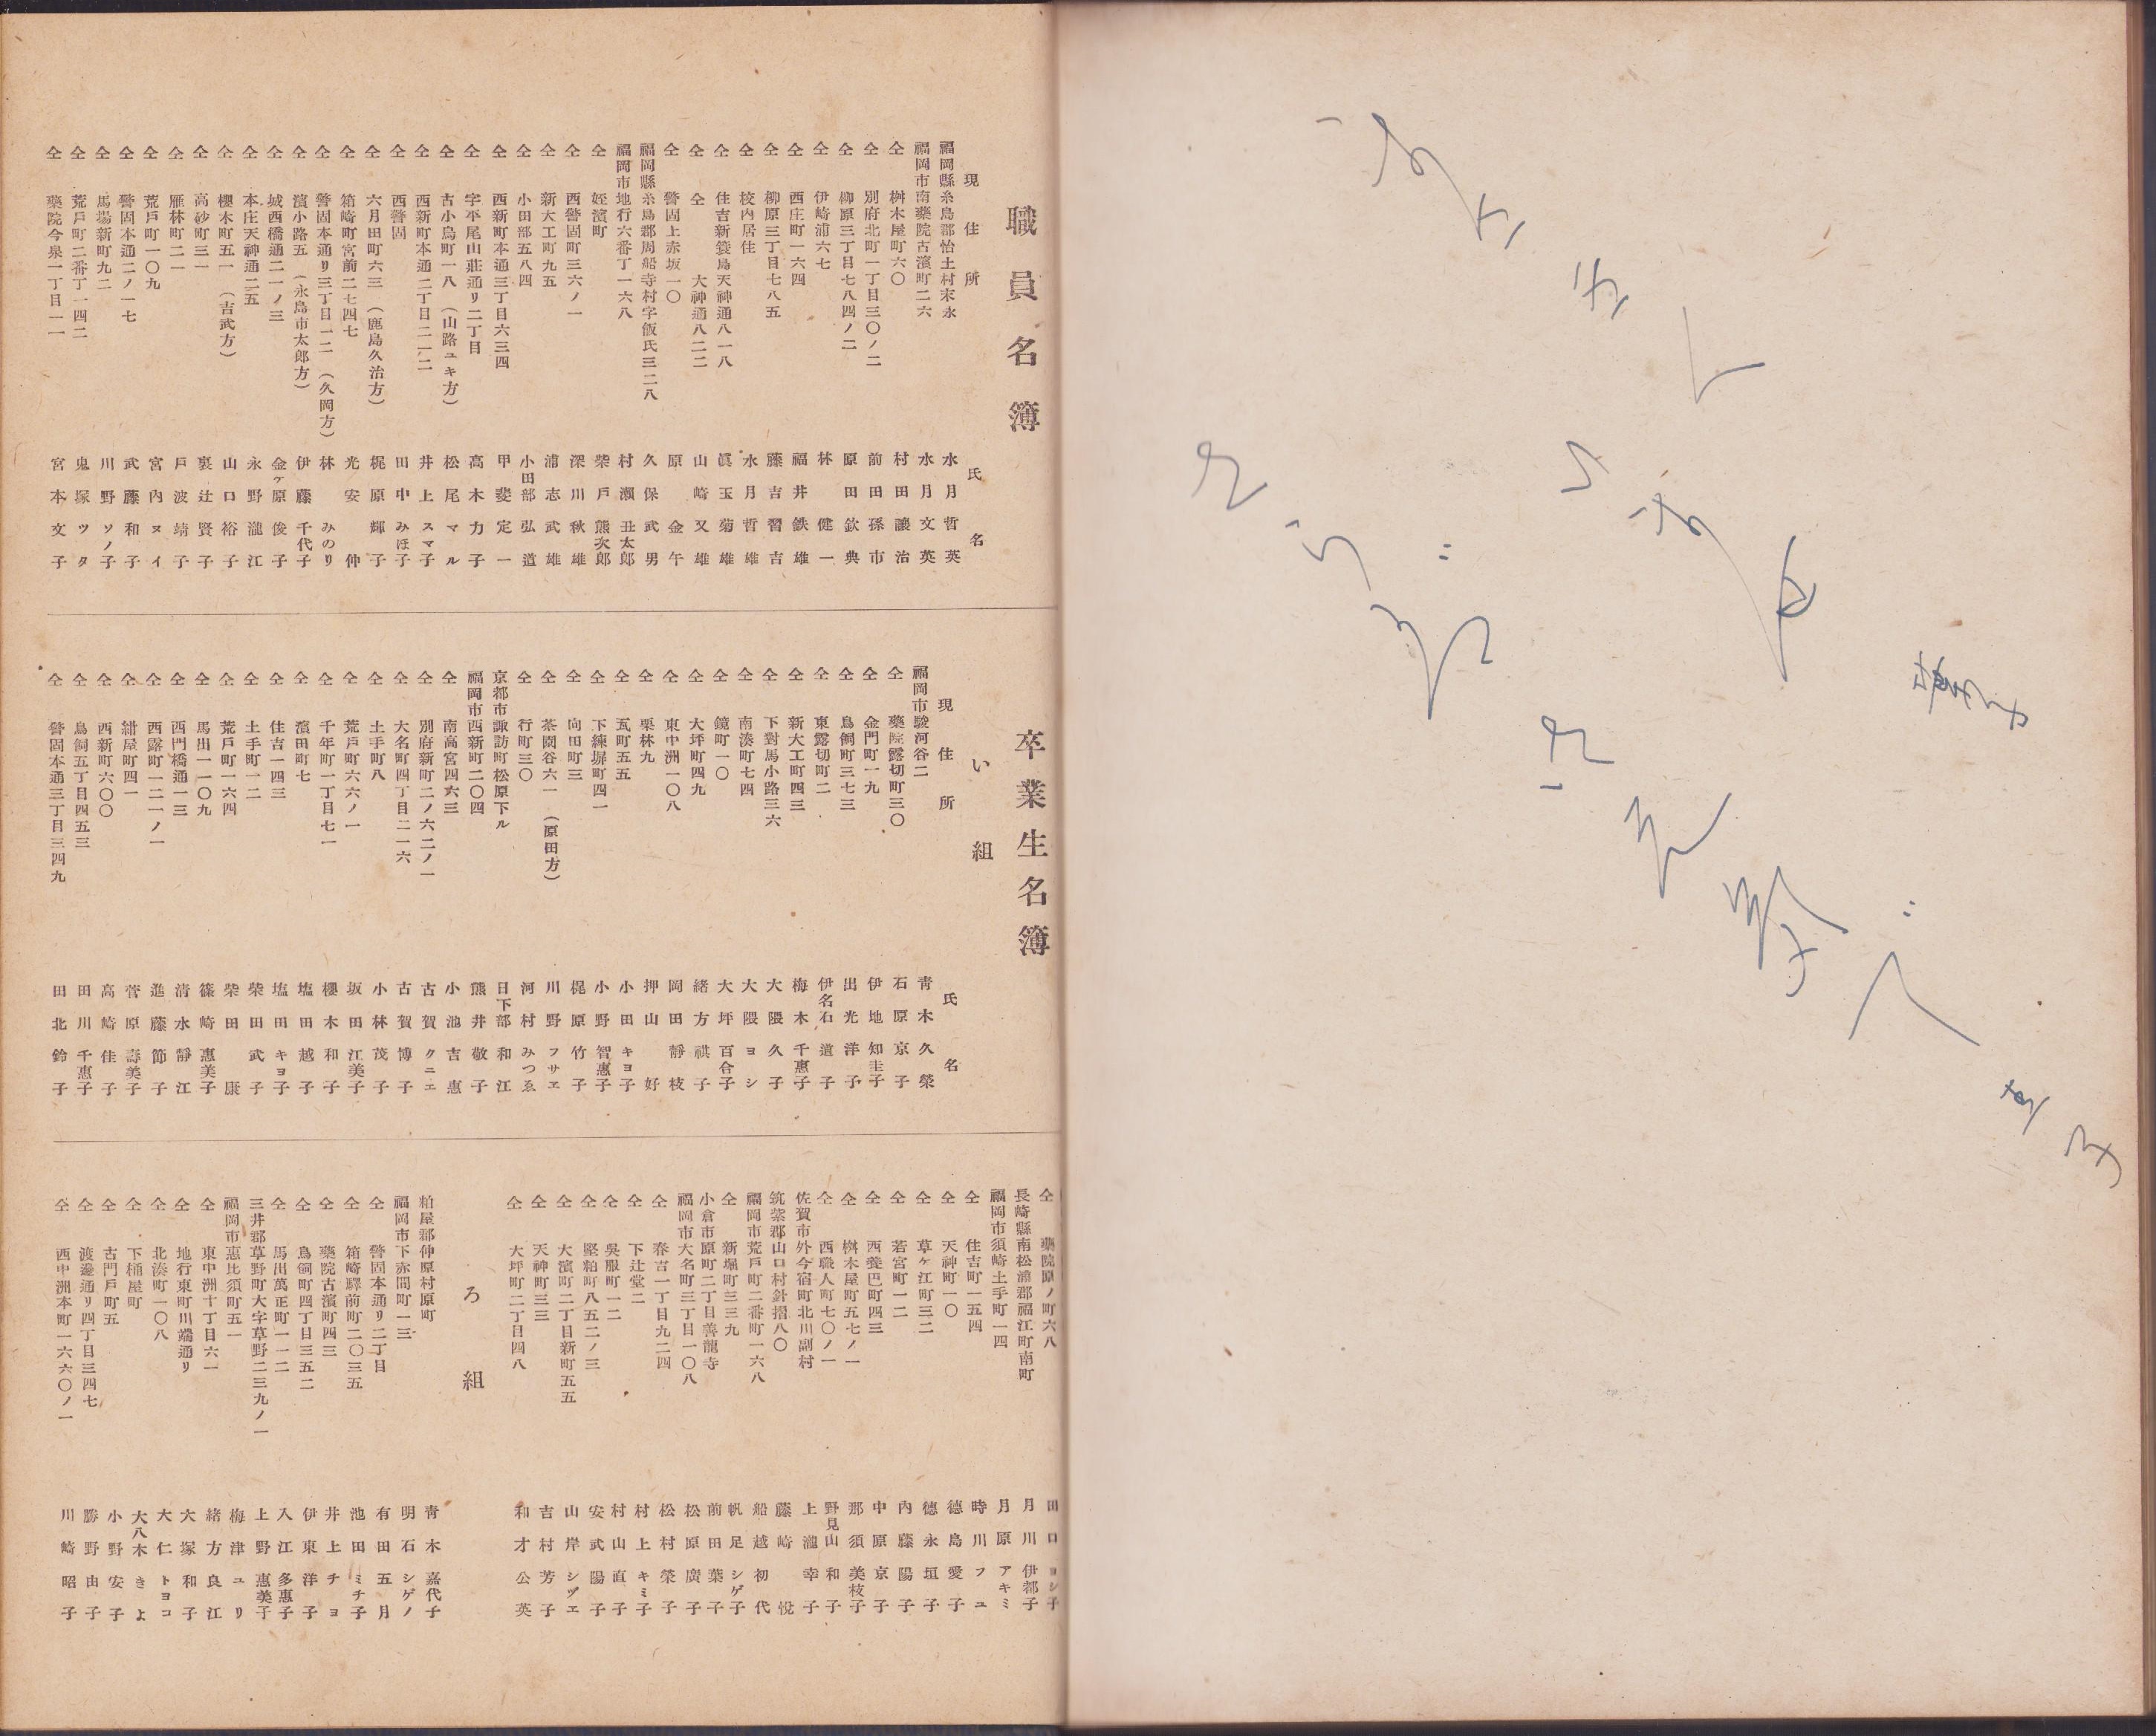 職員名簿
現住所 氏名
福岡縣糸島郡怡土村末永 水月哲英
福岡市南藥院古濱町二六 水月文英
仝 桝木屋町六〇 村田讓治
仝 別府北町一丁目三〇ノ二 前田孫市
仝 柳原三丁目七八四ノ二 原田欽典
仝 伊崎浦六七 林健一
仝 西庄町一六四 福井鉄雄
仝 柳原三丁目七八五 藤吉習吉
仝 校内居住 水月哲雄
仝 住吉新簑島天神通八一八 眞玉菊雄
仝 仝 大神通八二二 山崎又雄
仝 警固上赤坂一〇 原金午
福岡縣糸島郡周船寺村字飯氏三二八 久保武男
福岡市地行六番丁一六八 村瀬丑太郎
仝 姪濱町 柴戸熊次郎
仝 西警固町三六ノ一 深川秋雄
仝 新大工町九五 浦志武雄
仝 小田部五八四 小田部弘道
仝 西新町本通三丁目六三四 甲斐定一
仝 字平尾山莊通リ二丁目 高木力子
仝 古小烏町一八（山路ユキ方） 松尾マル
仝 西新町本通二丁目二一二 井上スマ子
仝 西警固 田中みほ子
仝 六月田町六三（鹿島久治方） 梶原輝子
仝 箱崎町宮前二七四七 光安伸
仝 警固本通リ三丁目一二（久岡方） 林みのり
仝 濱小路五（永島市太郎方） 伊藤千代子
仝 城西橋通二一ノ三 金ヶ原俊子
仝 本庄天神通二五 永野瀧江
仝 櫻木町五一（吉武方） 山口裕子
仝 高砂町三一 裏辻賢子
仝 雁林町二一 戸波靖子
仝 荒戸町一〇九 宮内ヌイ
仝 警固本通二ノ一七 武藤和子
仝 馬場新町九二 川野ソノ子
仝 荒戸町二番丁一四二 鬼塚ツタ
仝 藥院今泉一丁目一一 宮本文子
卒業生名簿
い組
現住所 氏名
福岡市駿河谷二 青木久榮
仝 藥院露切町三〇 石原京子
仝 金門町一九 伊地知圭子
仝 鳥飼町三七三 出光洋子
仝 東露切町二 伊名石道子
仝 新大工町四三 梅木千惠子
仝 下對馬小路三六 大隈久子
仝 南湊町七四 大隈ヨシ
仝 鏡町一〇 大坪百合子
仝 大坪町四九 緒方祺子
仝 東中洲一〇八 岡田靜枝
仝 栗林九 押山好
仝 瓦町五五 小田キヨ子
仝 下練塀町四一 小野智惠子
仝 向田町三 梶原竹子
仝 茶園谷六一（原田方） 川野フサエ
仝 行町三〇 河村みつゑ
京都市諏訪町松原下ル 日下部和江
福岡市西新町二〇四 熊井敬子
仝 南高宮四六三 小池吉惠
仝 別府新町二ノ六二ノ一 古賀クニエ
仝 大名町四丁目二一六 古賀博子
仝 土手町八 小林茂子
仝 荒戸町六六ノ一 坂田江美子
仝 千年町一丁目七一 櫻木和子
仝 濱田町七 塩田越子
仝 住吉一四三 塩田キヨ子
仝 土手町一二 柴田武子
仝 荒戸町一六四 柴田康
仝 馬出一一〇九 篠崎惠美子
仝 西門橋通一三 清水靜江
仝 西露町一二一ノ一 進藤節子
仝 紺屋町四一 菅原壽美子
仝 西新町六〇〇 高崎佳子
仝 鳥飼五丁目四五三 田川千惠子
仝 警固本通三丁目三四九 田北鈴子
仝 藥院原ノ町六八 田口ヨシ子
長崎縣南松浦郡福江町南町 月川伊都子
福岡市須崎土手町一四 月原アキミ
仝 住吉町一五四 時川フユ
仝 天神町一〇 德島愛子
仝 草ヶ江町三二 德永垣子
仝 若宮町一二 内藤陽子
仝 西養巴町四三 中原京子
仝 桝木屋町五七ノ一 那須美枝子
仝 西職人町七〇ノ一 野見山和子
佐賀市外今宿町北川副村 上瀧幸子
筑紫郡山口村針摺八〇 藤崎悅
福岡市荒戸町二番町一六八 船越初代
仝 新堀町三三九 帆足シゲ子
小倉市原町二丁目善龍寺 前田葉子
福岡市大名町三丁目一〇八 松原廣子
仝 春吉一丁目九二四 松村榮子
仝 下辻堂二 村上キミ子
仝 吳服町一二 村山直子
仝 堅粕町八五二ノ三 安武陽子
仝 大濱町二丁目新町五五 山岸シヅエ
仝 天神町三三 吉村芳子
仝 大坪町二丁目四八 和才公英
ろ組
粕屋郡仲原村原町 青木嘉代子
福岡市下赤間町一三 明石シゲノ
仝 警固本通リ二丁目 有田五月
仝 箱崎驛前町二〇三五 池田ミチ子
仝 藥院古濱町四三 井上チヨ
仝 鳥飼町四丁目三五二 伊東洋子
仝 馬出萬正町一一二 入江多惠子
三井郡草野町大字草野二三九ノ一 上野惠美子
福岡市惠比須町五一 梅津ユリ
仝 東中洲十丁目六一 緒方良江
仝 地行東町川端通リ 大塚和子
仝 北湊町一〇八 大仁トヨコ
仝 下桶屋町 大八木きよ
仝 古門戸町五 小野安子
仝 渡邊通リ四丁目三四七 勝野由子
仝 西中洲本町一六六〇ノ一 川崎昭子